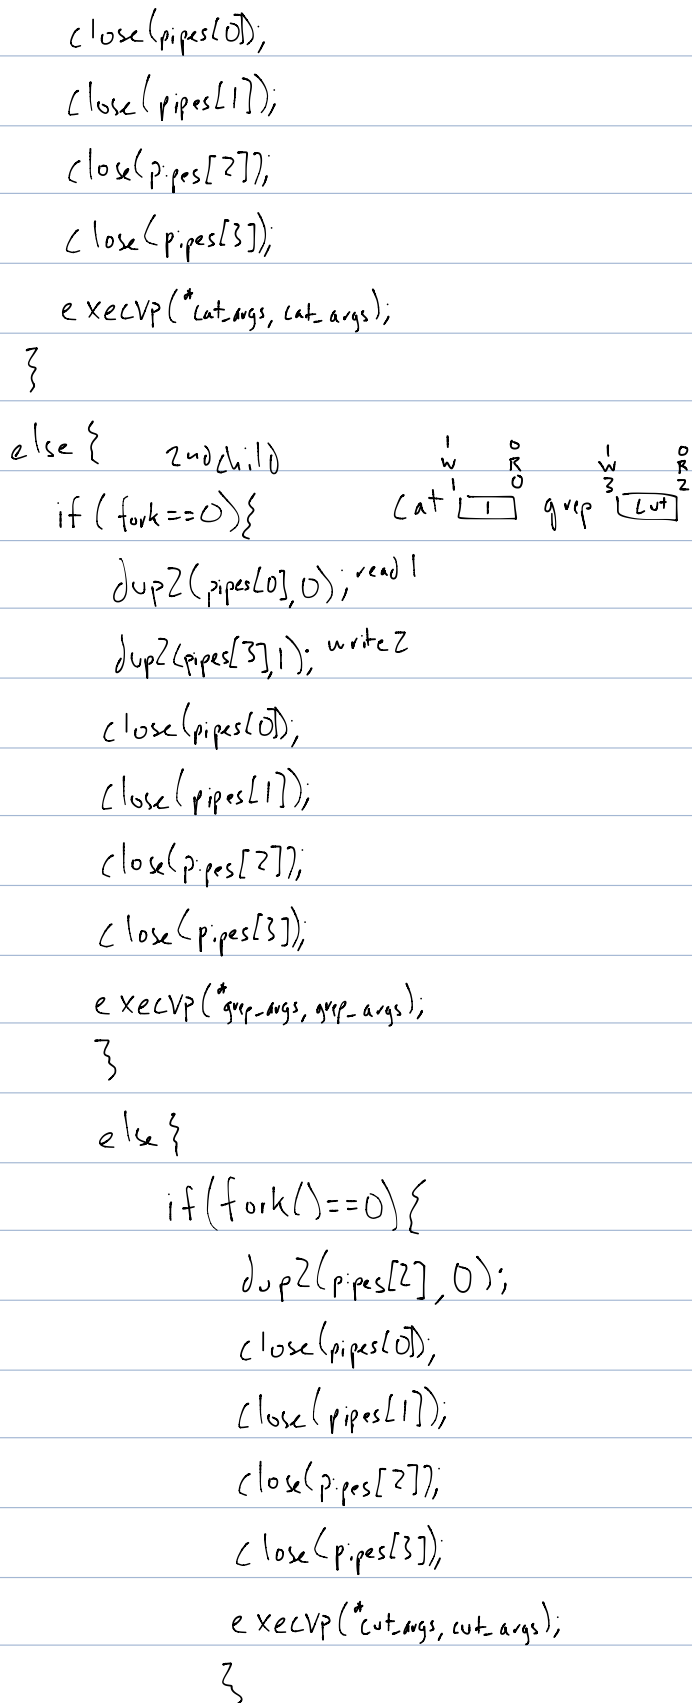 close(pipes[0]);
close(pipes[1]);
close(pipes[2]);
close(pipes[3]);
execvp(*cat_args, cat_args);
}
else{ 2nd child
1 0 1 0
W R W R
1 0 3 2
if(fork==0){ cat 1 grep cut
dup2(pipes[0],0); read 1
dup2(pipes[3],1); write 2
close(pipes[0]);
close(pipes[1]);
close(pipes[2]);
close(pipes[3]);
execvp(*grep_args, grep_args);
}
else{
if(fork()==0){
dup2(pipes[2],0);
close(pipes[0]);
close(pipes[1]);
close(pipes[2]);
close(pipes[3]);
execvp(*cut_args, cut_args);
}